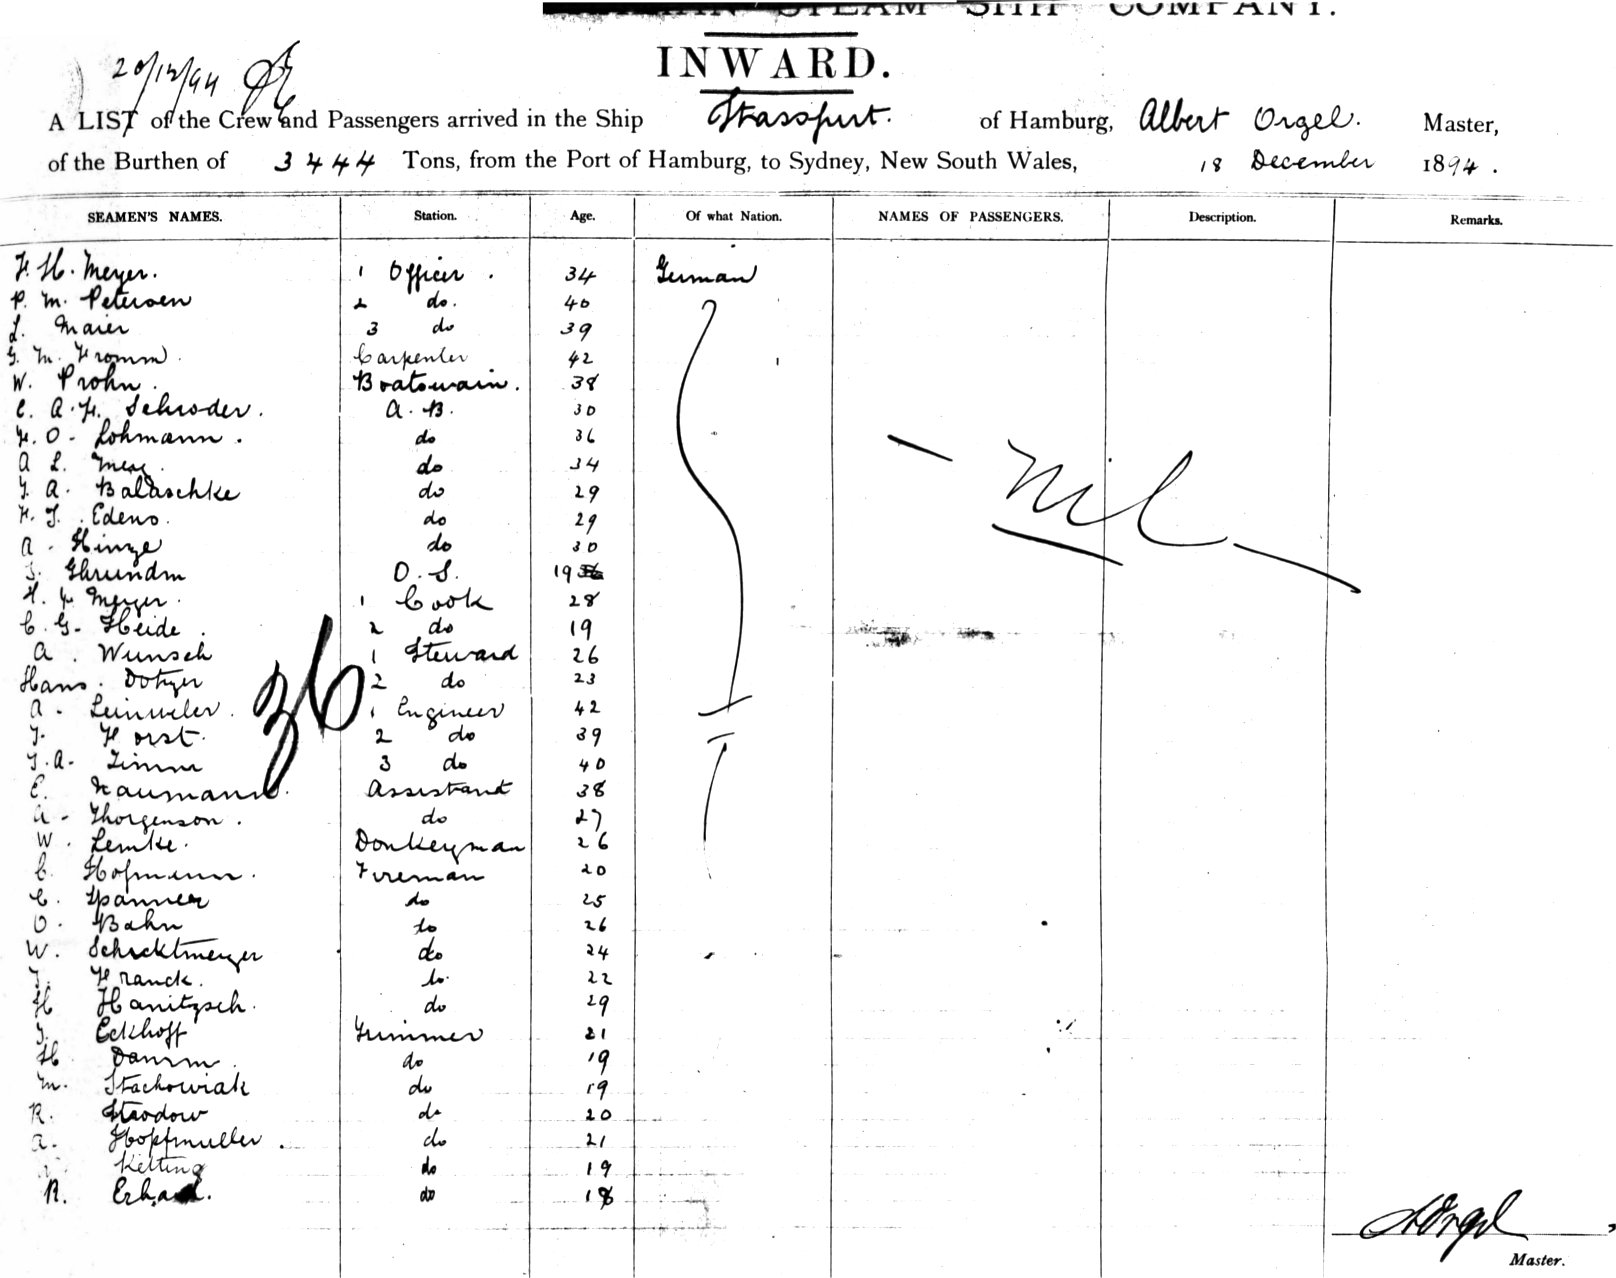 STEAM SHIP COMPANY.
INWARD.
20/12/94
A LIST of the Crew and Passengers arrived in the Ship Stassfurt. of Hamburg, Albert Orgel. Master,
of the Burthen of 3444 Tons, from the Port of Hamburg, to Sydney, New South Wales, 18 December 1894.
SEAMEN'S NAMES. Station. Age. Of what Nation. NAMES OF PASSENGERS. Description. Remarks.
F. H. Meyer. 1 Officer. 34 German
P. M. Petersen 2 do. 40
L. Maier 3 do 39
G. M. Fromm. Carpenter 42
W. Prohn. Boatswain. 38
C. A. F. Schroder. A. B. 30
F. O. Lohmann. do 36
A L. do 34
J. A. Balaschke do 29
F. J. Edens. do 29
A. Hinze do 30
O. S. 19
H. F. Meyer. 1 Cook 28
C. G. Heide. 2 do 19
A. Wunsch 1 Steward 26
Hans. 2 do 23
A. Leinweler. 1 Engineer 42
J. Horst. 2 do 39
J. A. Timm 3 do 40
E. Naumann. Assistant 38
A. Thorgenson. do 27
W. Lemke. Donkeyman 26
C. Hofmann. Fireman 20
C. Spanner do 25
O. Bahn do 26
W. do 24
J. Franck. do. 22
H Hanitzsch. do 29
J. Eckhoff Trimmer 21
H. Damm. do 19
M. Stachowiak do 19
R. do 20
A. Hopfmuller. do 21
Ketting do 19
R. do 18
36
- Nil -
A Orgel
Master.